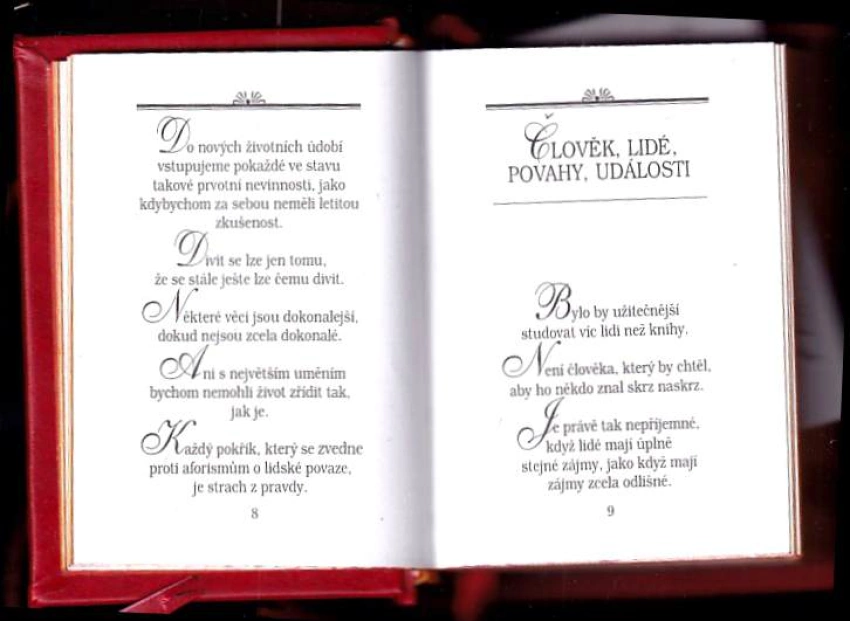 Do nových životních údobí
vstupujeme pokaždé ve stavu
takové prvotní nevinnosti, jako
kdybychom za sebou neměli letitou
zkušenost.
Divit se lze jen tomu,
že se stále ješte lze čemu divit.
Některé věci jsou dokonalejší,
dokud nejsou zcela dokonalé.
Ani s největším uměním
bychom nemohli život zřídit tak,
jak je.
Každý pokřik, který se zvedne
proti aforismům o lidské povaze,
je strach z pravdy.
8
ČLOVĚK, LIDÉ,
POVAHY, UDÁLOSTI
Bylo by užitečnější
studovat víc lidi než knihy.
Není člověka, který by chtěl,
aby ho někdo znal skrz naskrz.
Je právě tak nepříjemné,
když lidé mají úplně
stejné zájmy, jako když mají
zájmy zcela odlišné.
9